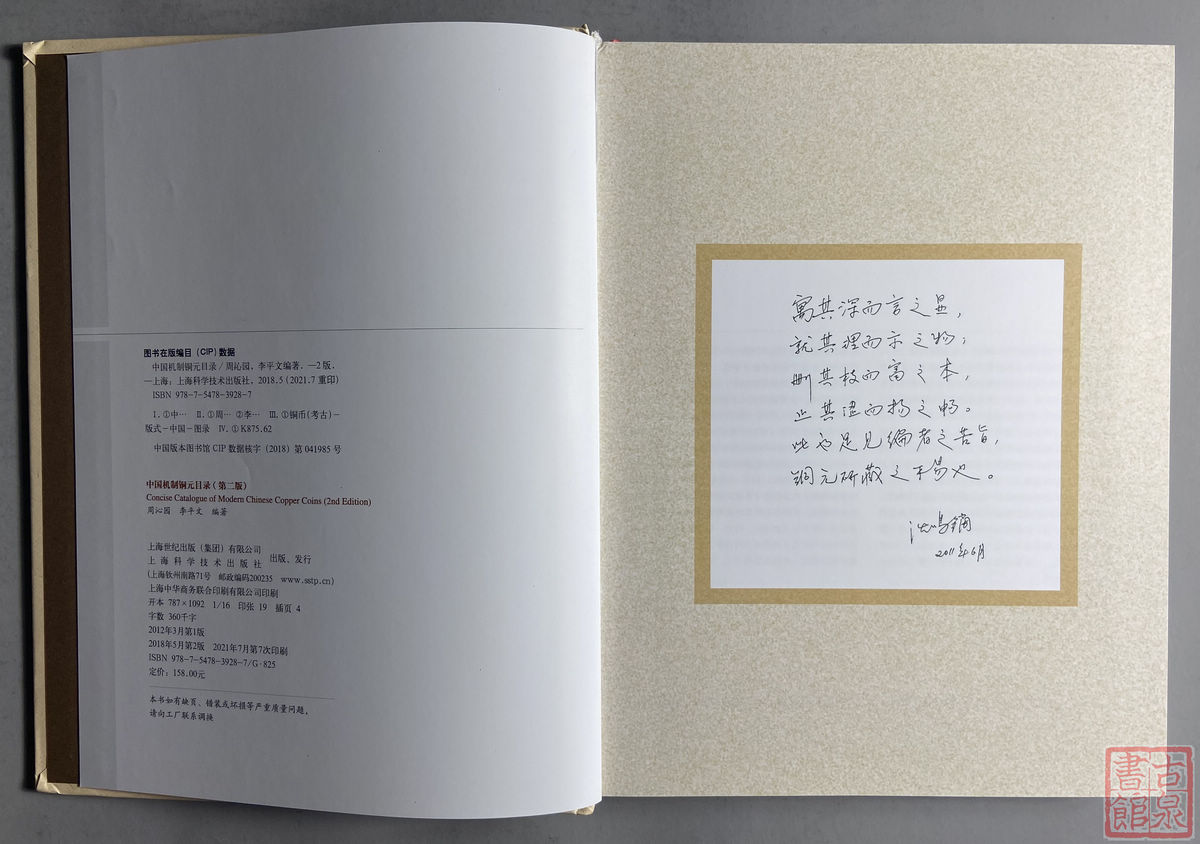 图书在版编目(CIP)数据
中国机制铜元目录/周沁园,李平文编著.—2版.
—上海:上海科学技术出版社,2018.5(2021.7重印)
ISBN 978-7-5478-3928-7
Ⅰ.①中… Ⅱ.①周… ②李… Ⅲ.①铜币(考古)-
版式-中国-图录 Ⅳ.①K875.62
中国版本图书馆CIP数据核字(2018)第041985号
中国机制铜元目录(第二版)
Concise Catalogue of Modern Chinese Copper Coins (2nd Edition)
周沁园 李平文 编著
上海世纪出版(集团)有限公司
上海科学技术出版社
出版、发行
(上海钦州南路71号 邮政编码200235 www.sstp.cn)
上海中华商务联合印刷有限公司印刷
开本 787×1092 1/16 印张 19 插页 4
字数 360千字
2012年3月第1版
2018年5月第2版 2021年7月第7次印刷
ISBN 978-7-5478-3928-7/G·825
定价:158.00元
本书如有缺页、错装或坏损等严重质量问题,
请向工厂联系调换
寓其深而言之显,
就其理而示之物;
删其枝而富之本,
止其涩而扬之畅。
此也足见编者之苦旨,
铜元研藏之不易也。
沈鸣镝
2011年6月
古泉
書館